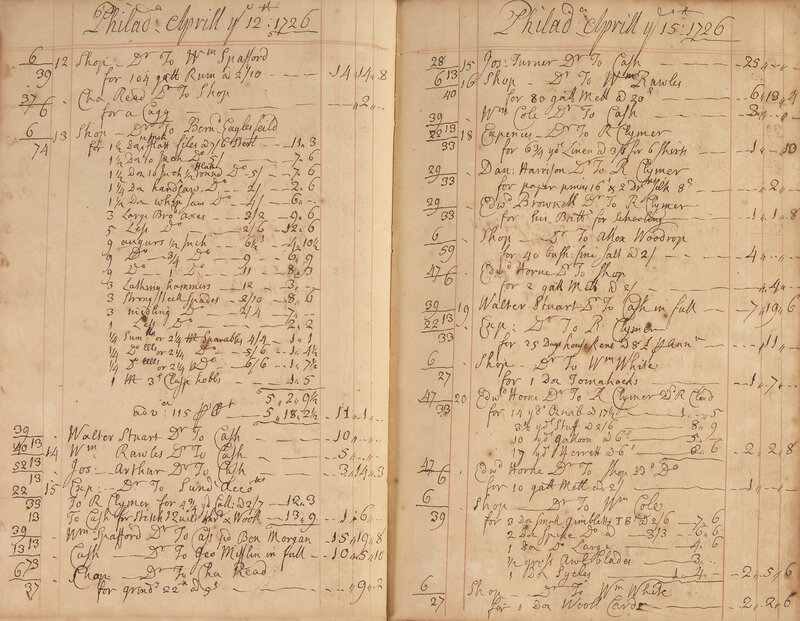 Philada Aprill ye 12th: 1726
6 12 Shop Dr To Wm Spafford
39 for 104 gall Rum a 2/10 14,,14,,8
37 Cha Read Dr To Shop
6 for a Cagg ,,2,,
6 13 Shop Dr To Bern: Eaglesfeild
74 for 1½ Da flatt files a 7/6 11,,3
1½ Da 10 Inch Do 5/ 7,,6
1½ Da 10 Inch ½ round Do 5/ 7,,6
1¼ Da handsaw Do 2/ 2,,6
1½ Da whip saw Do 4/ 6,,
3 Large Bro axes 3/2 9,,6
5 Less Do 2/6 12,,6
9 augurs ½ Inch 6½d 4,,10½
9 Do ¾ Do 9 6,,9
9 Do 1 Do 11 8,,3
3 Lathing hammers 12 3,,
3 Strong steel spades 2/10 8,,6
3 midling Do 2/4 7,,
1 Less Do 2,,2
¼ Sum: or 2¼ M Sparables 4/4 1,,1
¼ Do or 2¼ Do 5/6 1,,4½
¼ Do or 2¼ Do 6/6 1,,7½
1 M 3d Clasp hobbs 1,,5
5,,2,,9½
ad: 115 P Ct 5,,18,,2½ 11,,1,,
39 Walter Stuart Dr To Cash 10,,
13
40 14 Wm Rawles Dr To Cash 5,,
13
52 Jos: Arthur Dr To Cash 3,,14,,3
13
22 15 Exp: Dr To Sundr Accots
33 To R Clymer for 4¾ yd a 2/7 12,,3
13 To Cash for & Wood 13,,9 1,,6,,
39 Wm Spafford Dr To Cash pd Ben Morgan 15,,19,,8
13
13 Cash Dr To Geo Mifflin in full 10,,5,,10
67
3 Shop Dr To Cha Read
37 for grinds 22 a 9s ,,9,,2
Philada Aprill ye 15th: 1726
28 15 Jos: Turner Dr To Cash 25,,
13
6 16 Shop Dr To Wm Rawles
40 for 80 gall Mell a 20d 6,,13,,4
39 Wm Cole Dr To Cash 3,,
13
22 18 Expences Dr To R Clymer
33 for 6¾ yds Linen a 3/ for 6 Shirts 1,,,,10
29 Dan: Harrison Dr To R Clymer
33 for paper pinns 16d & 2 Silk 8d ,,2,,
29 Edwd Brownell Dr To R Clymer
33 for his Bill for Schooling 1,,1,,8
6 Shop Dr To Allex Woodrop
59 for 40 bush: fine salt a 2/ 4,,
47 Edwd Horne Dr To Shop
6 for 2 gall Mell a 2/ ,,4,,
39 19 Walter Stuart Dr To Cash in full 7,,19,,6
13
22 Exp: Dr To R Clymer
33 for 25 Days house Rent a 8£ P Annm ,,11,,
6 Shop Dr To Wm White
27 for 1 Doz Tomahocks 1,,7,,
47 20 Edwd Horne Dr To R Clymer Dd R Clard
33 for 14 yds Oznab a 17½ 1,,,,5
3½ yds Stuff a 2/6 8,,9
10 yds galoon a 6d 5,,
17 yds Ferrett a 6d 8,,6 2,,2,,8
47 Edwd Horne Dr To Shop Dd Do
6 for 10 gall Mell a 2/ 1,,
6 Shop Dr To Wm Cole
39 for 3 Da small Gimbletts TB a 2/6 7,,6
2 Da spike Do a 3/3 6,,6
1 Da Do Large 4,,6
½ gross Awl blades 3,,
1 Doz Sycles 1,,4,, 2,,5,,6
6 Shop Dr To Wm White
27 for 1 Doz Wooll Cards 2,,2,,6